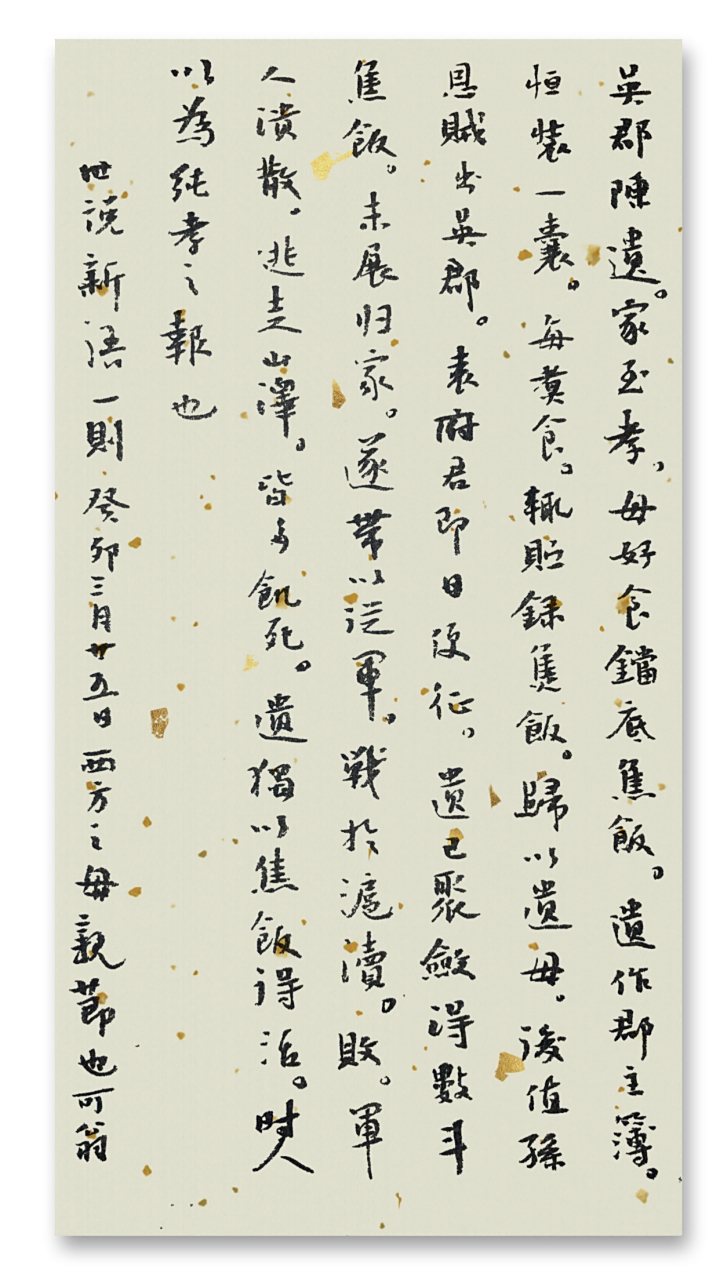 吳郡陳遺。家至孝，母好食鐺底焦飯。遺作郡主簿。
恒裝一囊。每煑食。輒貯錄焦飯。歸以遺母。後值孫
恩賊出吳郡。袁府君即日便征，遺已聚斂得數斗
焦飯。未展归家。遂带以従軍。戰於滬瀆。敗。軍
人潰散。逃走山澤。皆多飢死。遺獨以焦飯得活。時人
以為純孝之報也
世說新语一則癸卯三月廿五日西方之母親節也可翁